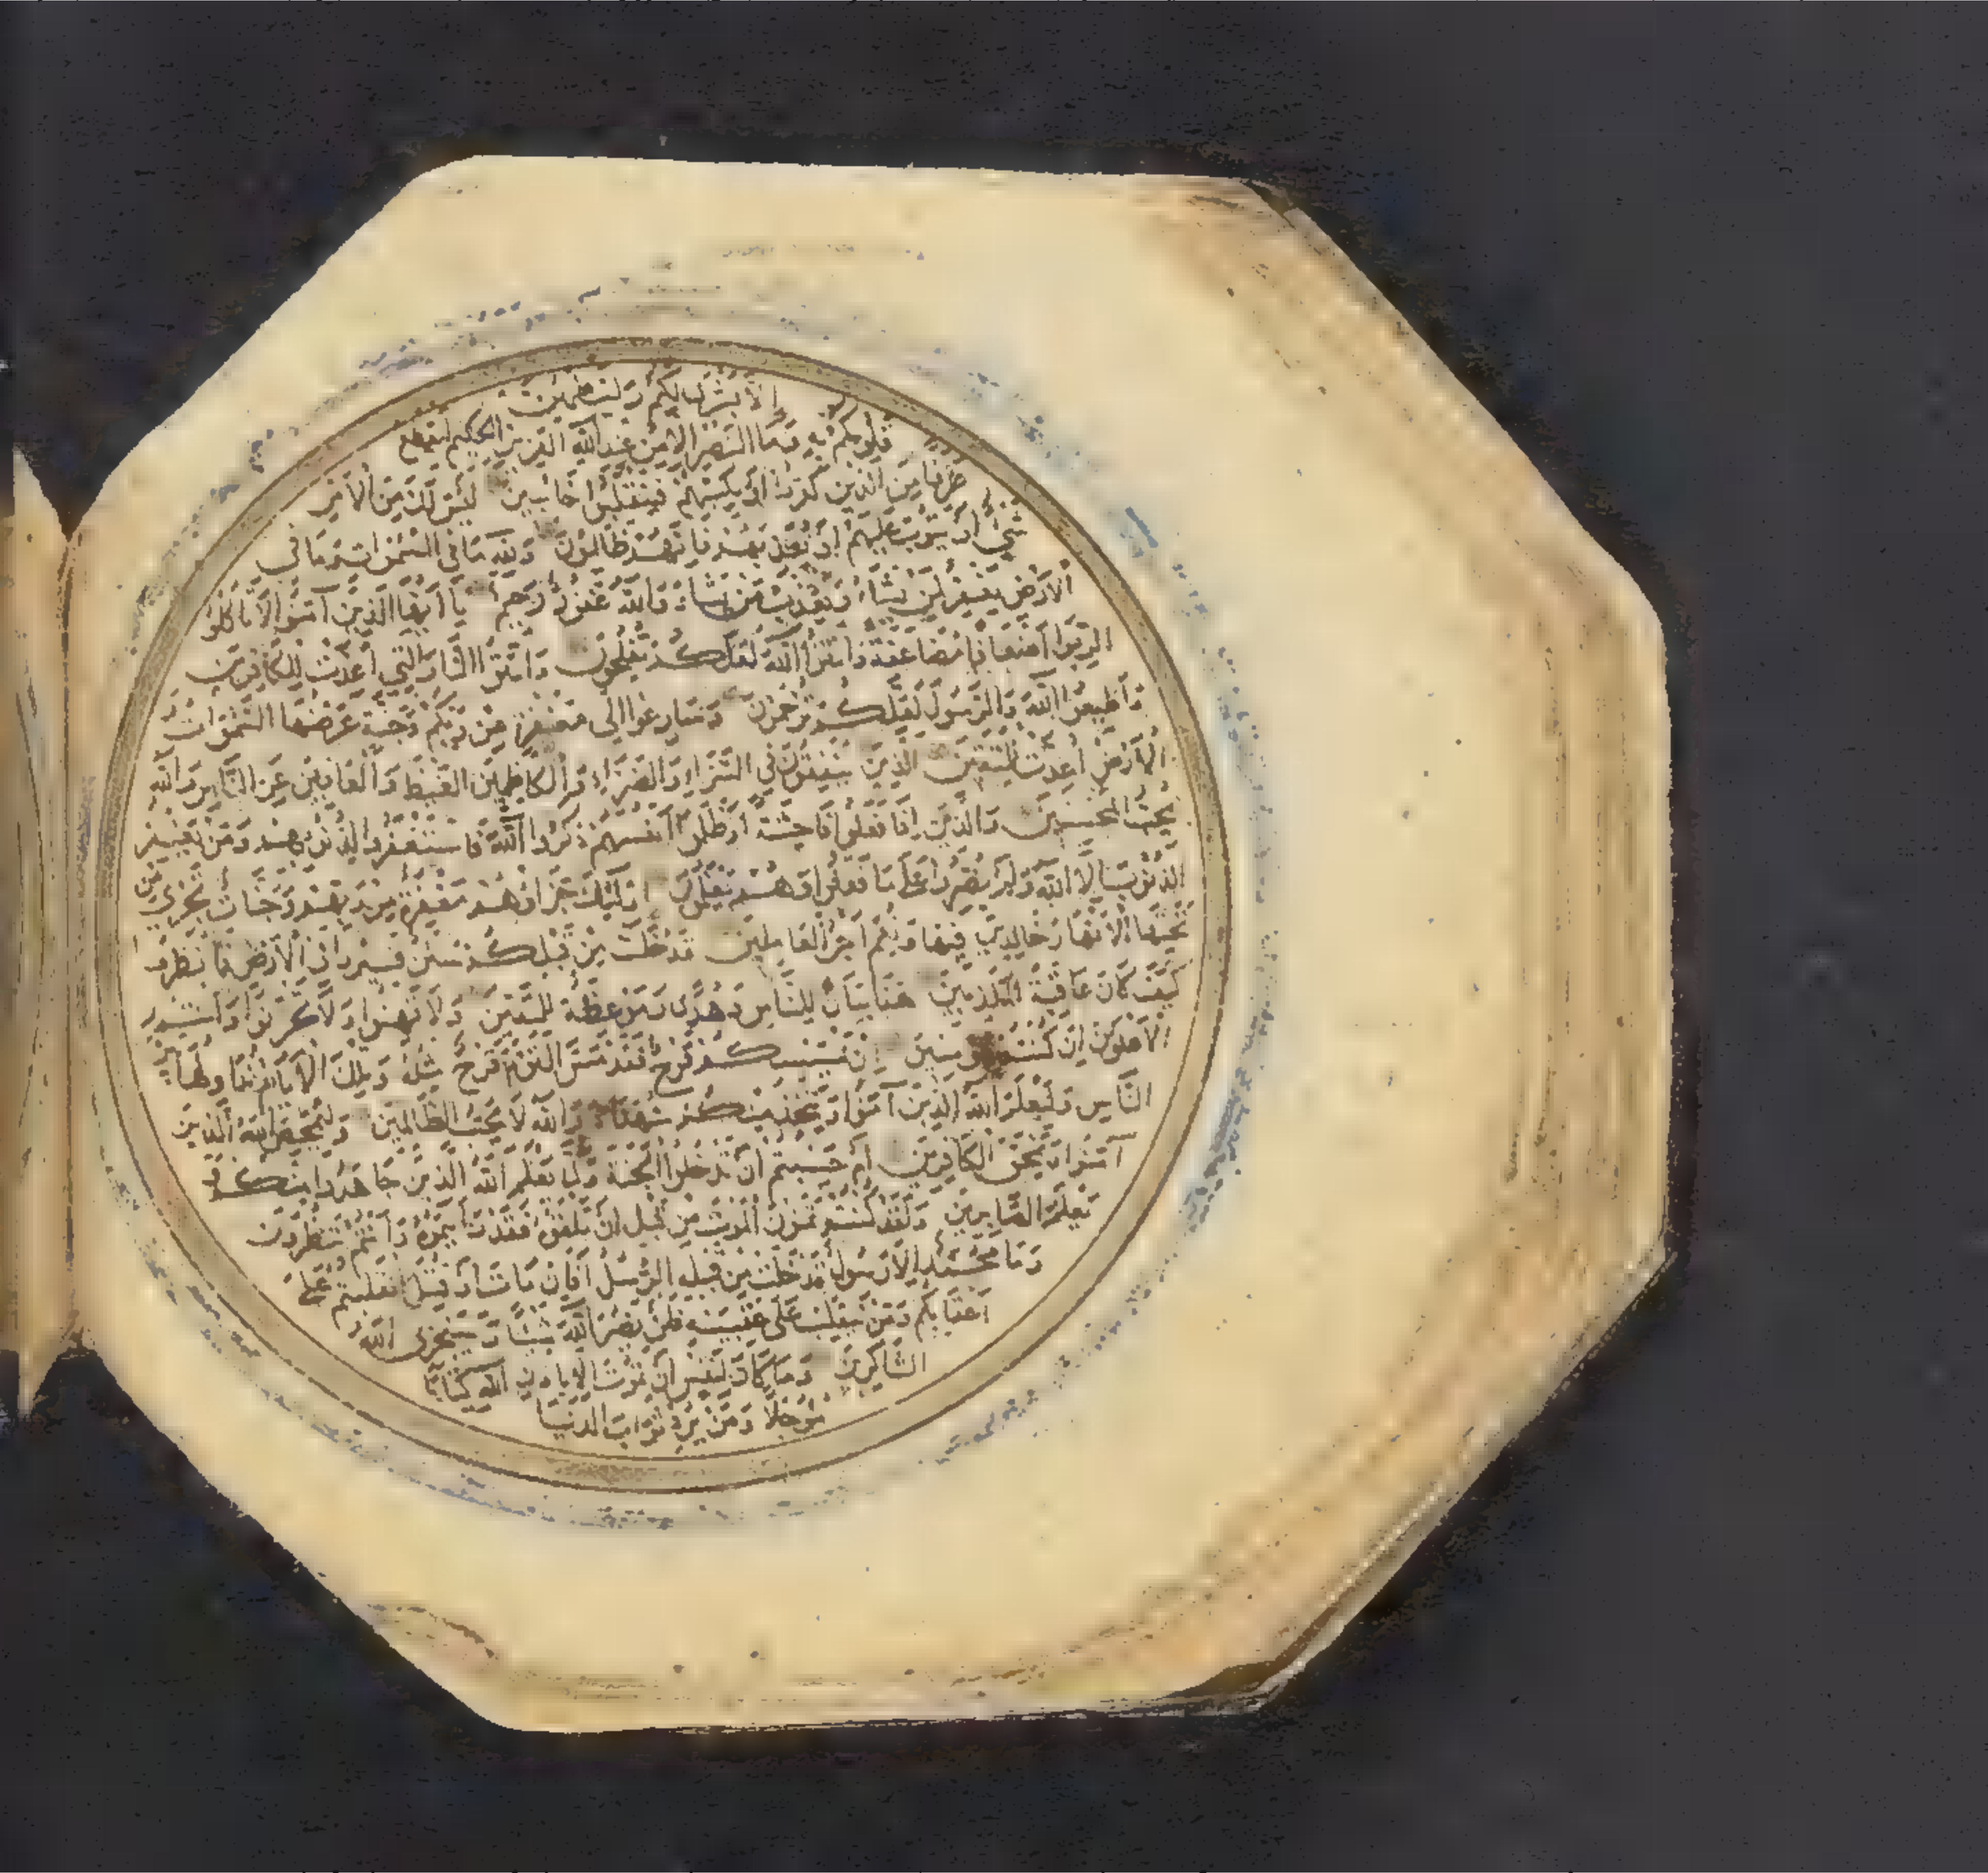 إِلَّا بُشْرَى لَكُمْ وَلِتَطْمَئِنَّ
قُلُوبُكُمْ بِهِ وَمَا النَّصْرُ إِلَّا مِنْ عِنْدِ اللَّهِ الْعَزِيزِ الْحَكِيمِ لِيَقْطَعَ
طَرَفًا مِنَ الَّذِينَ كَفَرُوا أَوْ يَكْبِتَهُمْ فَيَنْقَلِبُوا خَائِبِينَ لَيْسَ لَكَ مِنَ الْأَمْرِ
شَيْءٌ أَوْ يَتُوبَ عَلَيْهِمْ أَوْ يُعَذِّبَهُمْ فَإِنَّهُمْ ظَالِمُونَ وَلِلَّهِ مَا فِي السَّمَوَاتِ وَمَا فِي
الْأَرْضِ يَغْفِرُ لِمَنْ يَشَاءُ وَيُعَذِّبُ مَنْ يَشَاءُ وَاللَّهُ غَفُورٌ رَحِيمٌ يَا أَيُّهَا الَّذِينَ آمَنُوا لَا تَأْكُلُوا
الرِّبَوا أَضْعَافًا مُضَاعَفَةً وَاتَّقُوا اللَّهَ لَعَلَّكُمْ تُفْلِحُونَ وَاتَّقُوا النَّارَ الَّتِي أُعِدَّتْ لِلْكَافِرِينَ
وَأَطِيعُوا اللَّهَ وَالرَّسُولَ لَعَلَّكُمْ تُرْحَمُونَ وَسَارِعُوا إِلَى مَغْفِرَةٍ مِنْ رَبِّكُمْ وَجَنَّةٍ عَرْضُهَا السَّمَوَاتُ وَ
الْأَرْضُ أُعِدَّتْ لِلْمُتَّقِينَ الَّذِينَ يُنْفِقُونَ فِي السَّرَّاءِ وَالضَّرَّاءِ وَالْكَاظِمِينَ الْغَيْظَ وَالْعَافِينَ عَنِ النَّاسِ وَاللَّهُ
يُحِبُّ الْمُحْسِنِينَ وَالَّذِينَ إِذَا فَعَلُوا فَاحِشَةً أَوْ ظَلَمُوا أَنْفُسَهُمْ ذَكَرُوا اللَّهَ فَاسْتَغْفَرُوا لِذُنُوبِهِمْ وَمَنْ يَغْفِرُ
الذُّنُوبَ إِلَّا اللَّهُ وَلَمْ يُصِرُّوا عَلَى مَا فَعَلُوا وَهُمْ يَعْلَمُونَ أُولَئِكَ جَزَاؤُهُمْ مَغْفِرَةٌ مِنْ رَبِّهِمْ وَجَنَّاتٌ تَجْرِي مِنْ
تَحْتِهَا الْأَنْهَارُ خَالِدِينَ فِيهَا وَنِعْمَ أَجْرُ الْعَامِلِينَ قَدْ خَلَتْ مِنْ قَبْلِكُمْ سُنَنٌ فَسِيرُوا فِي الْأَرْضِ فَانْظُرُوا
كَيْفَ كَانَ عَاقِبَةُ الْمُكَذِّبِينَ هَذَا بَيَانٌ لِلنَّاسِ وَهُدًى وَمَوْعِظَةٌ لِلْمُتَّقِينَ وَلَا تَهِنُوا وَلَا تَحْزَنُوا وَأَنْتُمُ
الْأَعْلَوْنَ إِنْ كُنْتُمْ مُؤْمِنِينَ إِنْ يَمْسَسْكُمْ قَرْحٌ فَقَدْ مَسَّ الْقَوْمَ قَرْحٌ مِثْلُهُ وَتِلْكَ الْأَيَّامُ نُدَاوِلُهَا بَيْنَ
النَّاسِ وَلِيَعْلَمَ اللَّهُ الَّذِينَ آمَنُوا وَيَتَّخِذَ مِنْكُمْ شُهَدَاءَ وَاللَّهُ لَا يُحِبُّ الظَّالِمِينَ وَلِيُمَحِّصَ اللَّهُ الَّذِينَ
آمَنُوا وَيَمْحَقَ الْكَافِرِينَ أَمْ حَسِبْتُمْ أَنْ تَدْخُلُوا الْجَنَّةَ وَلَمَّا يَعْلَمِ اللَّهُ الَّذِينَ جَاهَدُوا مِنْكُمْ وَ
يَعْلَمَ الصَّابِرِينَ وَلَقَدْ كُنْتُمْ تَمَنَّوْنَ الْمَوْتَ مِنْ قَبْلِ أَنْ تَلْقَوْهُ فَقَدْ رَأَيْتُمُوهُ وَأَنْتُمْ تَنْظُرُونَ
وَمَا مُحَمَّدٌ إِلَّا رَسُولٌ قَدْ خَلَتْ مِنْ قَبْلِهِ الرُّسُلُ أَفَإِنْ مَاتَ أَوْ قُتِلَ انْقَلَبْتُمْ عَلَى
أَعْقَابِكُمْ وَمَنْ يَنْقَلِبْ عَلَى عَقِبَيْهِ فَلَنْ يَضُرَّ اللَّهَ شَيْئًا وَسَيَجْزِي اللَّهُ
الشَّاكِرِينَ وَمَا كَانَ لِنَفْسٍ أَنْ تَمُوتَ إِلَّا بِإِذْنِ اللَّهِ كِتَابًا
مُؤَجَّلًا وَمَنْ يُرِدْ ثَوَابَ الدُّنْيَا